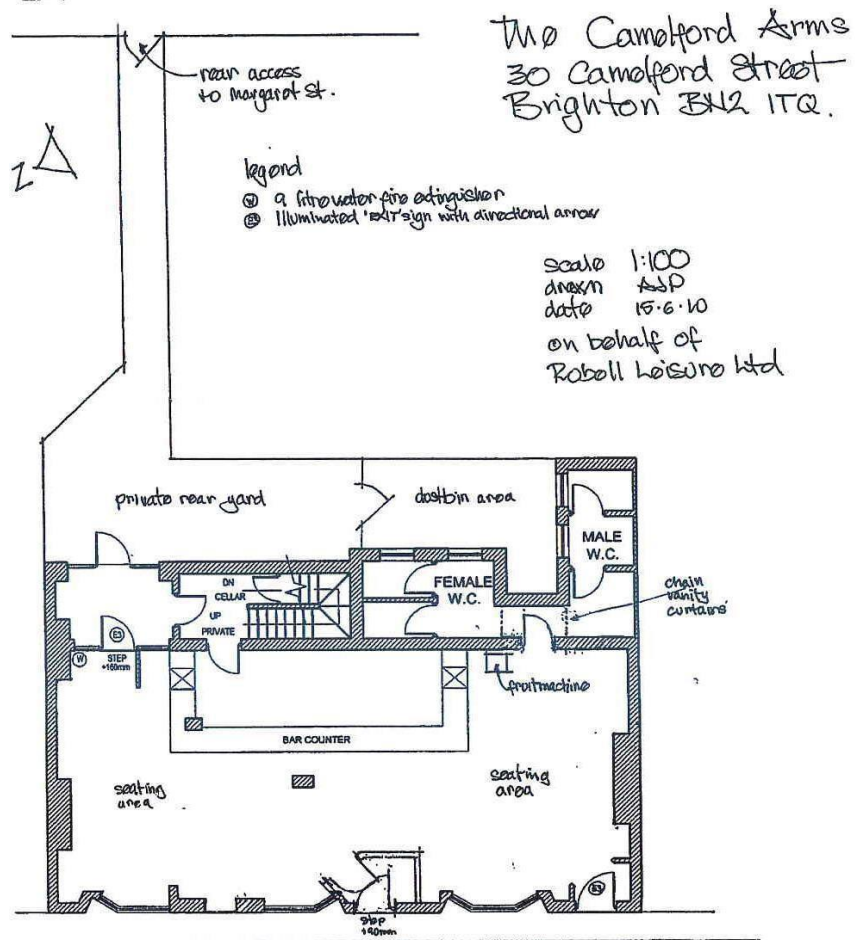 The Camelford Arms
30 Camelford Street
Brighton BN2 1TQ.
rear access
to margaret St.
N
legend
W 9 litre water fire extinguisher
E3 Illuminated 'EXIT' sign with directional arrow
scale 1:100
drawn AJP
date 15.6.10
on behalf of
Robell Leisure Ltd
private rear yard
dustbin area
MALE
W.C.
FEMALE
W.C.
DN
CELLAR
UP
PRIVATE
chain
vanity
curtains
E3
W
STEP
+160mm
fruitmachine
BAR COUNTER
seating
area
seating
area
E3
step
190mm